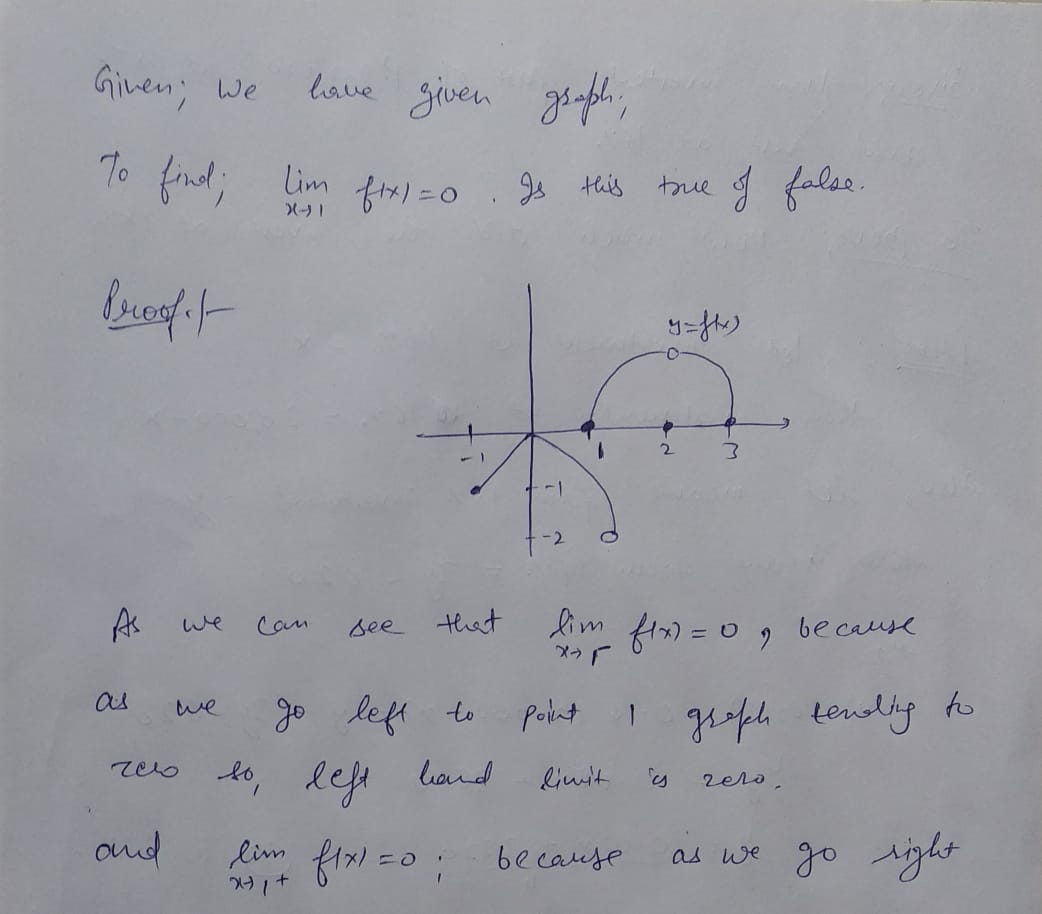 Given; we have given graph;
To find; lim f(x)=0 . Is this true of false.
x→1
Proof:-
y=f(x)
-1 1 2 3
-1
-2
As we can see that lim f(x) = 0 , because
x→1-
as we go left to point 1 graph tending to
zero so, left hand limit is zero.
and lim f(x)=0 ; because as we go right
x→1+